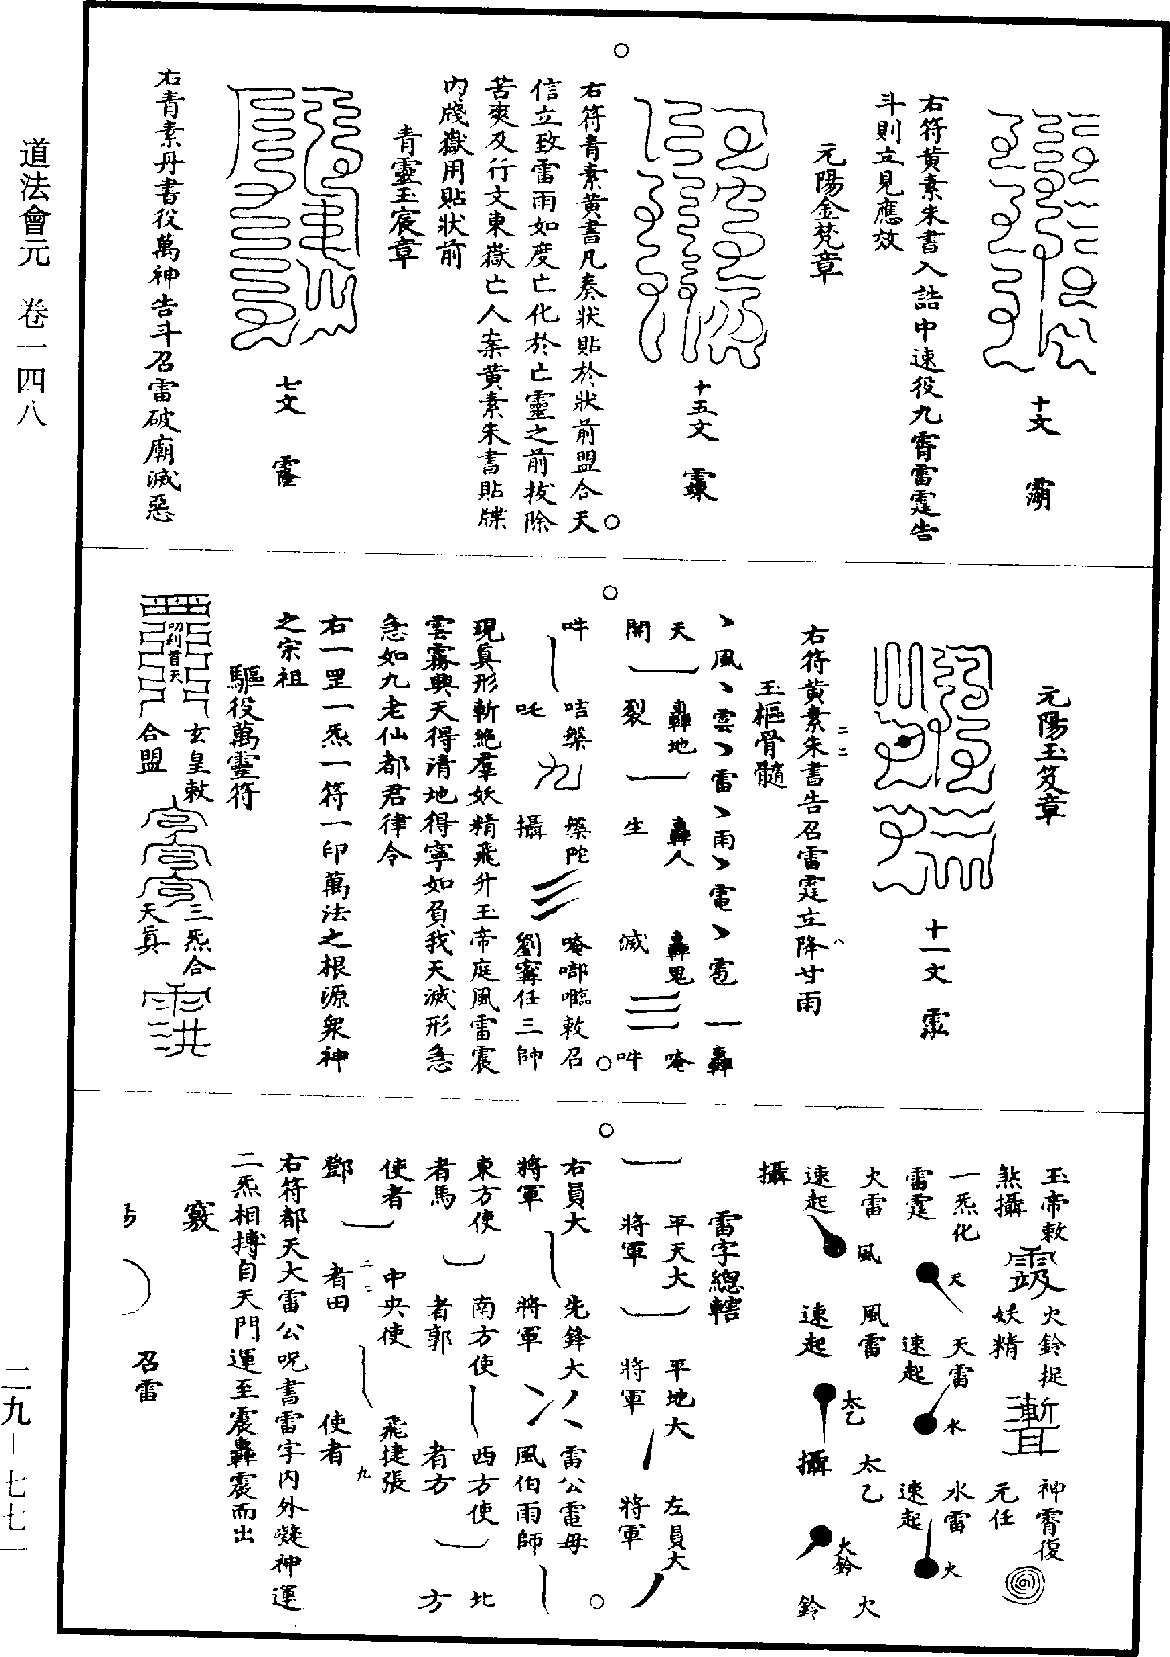 道法會元　卷一四八
十文
右符黃素朱書入誥中速役九霄雷霆告
斗則立見應效
元陽金梵章
十五文
右符青素黃書凡奏狀貼於狀前盟合天
信立致雷雨如度亡化於亡靈之前拔除
苦爽及行文東嶽亡人案黃素朱書貼牒
內牋嶽用貼狀前
青靈玉宸章
七文
右青素丹書役萬神告斗召雷破廟滅惡
元陽玉笈章
十一文
右符黃素朱書告召雷霆立降甘雨
玉樞骨髓
風雲雷雨電雹轟
天轟地轟人轟鬼唵
開裂生滅吽
吽咭㗚㗚陀唵啷𡄸敕召
吒攝劉甯任三帥
現真形斬絕羣妖精飛升玉帝庭風雷震
雲霧興天得清地得寧如負我天滅形急
急如九老仙都君律令
右一罡一炁一符一印萬法之根源眾神
之宗祖
驅役萬靈符
玄皇敕
合盟
三炁合
天真
玉帝敕
火鈴捉
神霄復
煞攝
妖精
元任
一炁化
天
天雷
水
水雷
火
雷霆
速起
速起
火雷
風
風雷
太乙
太乙
火鈴
火
速起
速起
攝
鈴
攝
雷字總轄
平天大
平地大
左員大
將軍
將軍
將軍
右員大
先鋒大
雷公電母
將軍
將軍
風伯雨師
東方使
南方使
西方使
北
者馬
者郭
者方
方
使者
中央使
飛捷張
鄧
者田
使者
右符都天大雷公呪書雷字內外凝神運
二炁相搏自天門運至震轟震而出
竅
召雷
二九—七七一